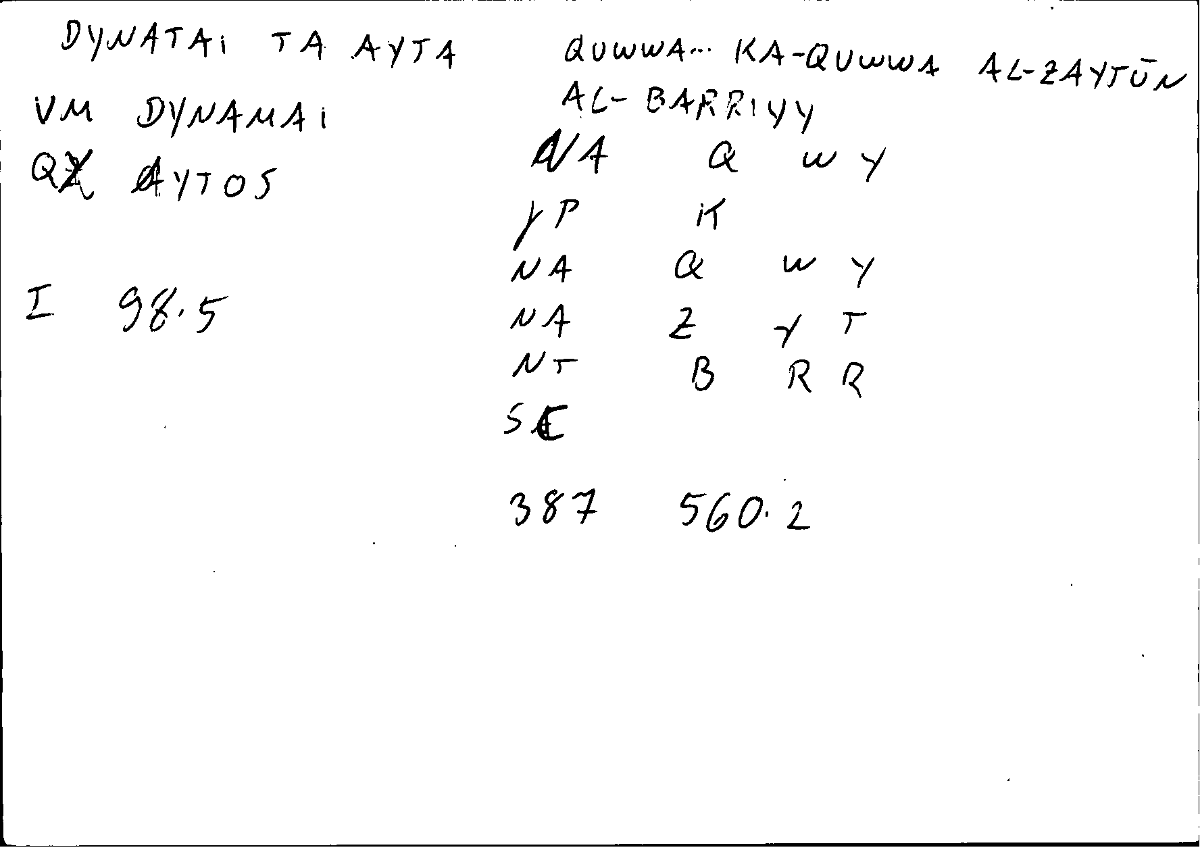 DYNATAI TA AYTA
VM DYNAMAI
AYTOS
I 98.5
QUWWA... KA-QUWWA AL-ZAYTŪN
AL-BARRIYY
NA Q W Y
yP K
NA Q W Y
NA Z Y T
NT B R R
387 560.2